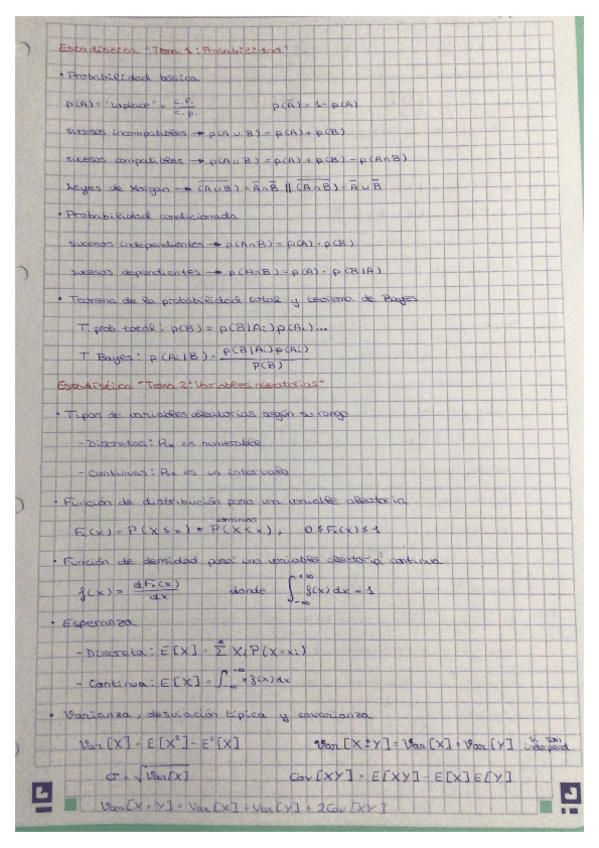 Estadística "Tema 1: Probabilidad"
· Probabilidad básica
p(A) = "Laplace" = c.f. / c.p.    p(A̅) = 1 - p(A)
sucesos incompatibles → p(A∪B) = p(A) + p(B)
sucesos compatibles → p(A∪B) = p(A) + p(B) - p(A∩B)
Leyes de Morgan → (A∪B)̅ = A̅∩B̅ || (A∩B)̅ = A̅∪B̅
· Probabilidad condicionada
sucesos independientes → p(A∩B) = p(A) · p(B)
sucesos dependientes → p(A∩B) = p(A) · p(B|A)
· Teorema de la probabilidad total y teorema de Bayes
T. prob. total: p(B) = p(B|Ai)p(Ai)...
T Bayes: p(Ai|B) = p(B|Ai)p(Ai) / p(B)
Estadística "Tema 2: Variables aleatorias"
· Tipos de variables aleatorias según su rango
- Discretas: Rx es numerable
- Continuas: Rx es un intervalo
· Función de distribución para una variable aleatoria
Fx(x) = P(X ≤ x) = P(X < x), 0 ≤ Fx(x) ≤ 1
continuas
· Función de densidad para una variable aleatoria continua
f(x) = dFx(x) / dx    donde ∫_{-∞}^{+∞} f(x) dx = 1
· Esperanza
- Discreta: E[X] = Σ Xi P(X=xi)
- Continua: E[X] = ∫_{-∞}^{+∞} x f(x) dx
· Varianza, desviación típica y covarianza
Var[X] = E[X²] - E²[X]    Var[X±Y] = Var[X] + Var[Y] si son independ.
σ = √Var[X]    Cov[XY] = E[XY] - E[X]E[Y]
Var[X+Y] = Var[X] + Var[Y] + 2Cov[XY]